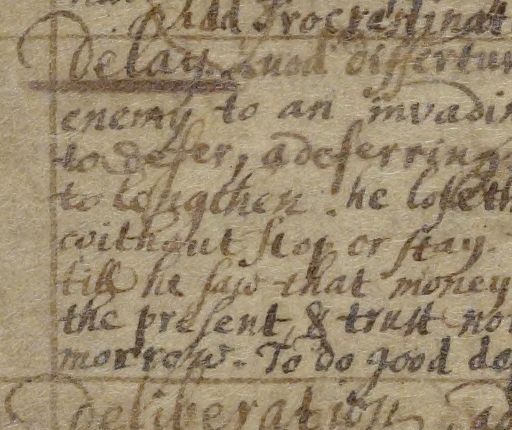 Add Procrastinat
Delay. Quod differtur
enemy to an invadin
to defer, a deferring
to lengthen. he loseth
without stop or stay.
till he saw that money
the present, & trust not
morrow. To do good do
Deliberation